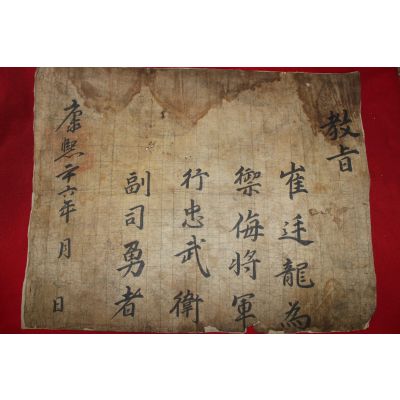 教旨
崔廷龍為
禦侮將軍
行忠武衛
副司勇者
康熙二十六年 月 日